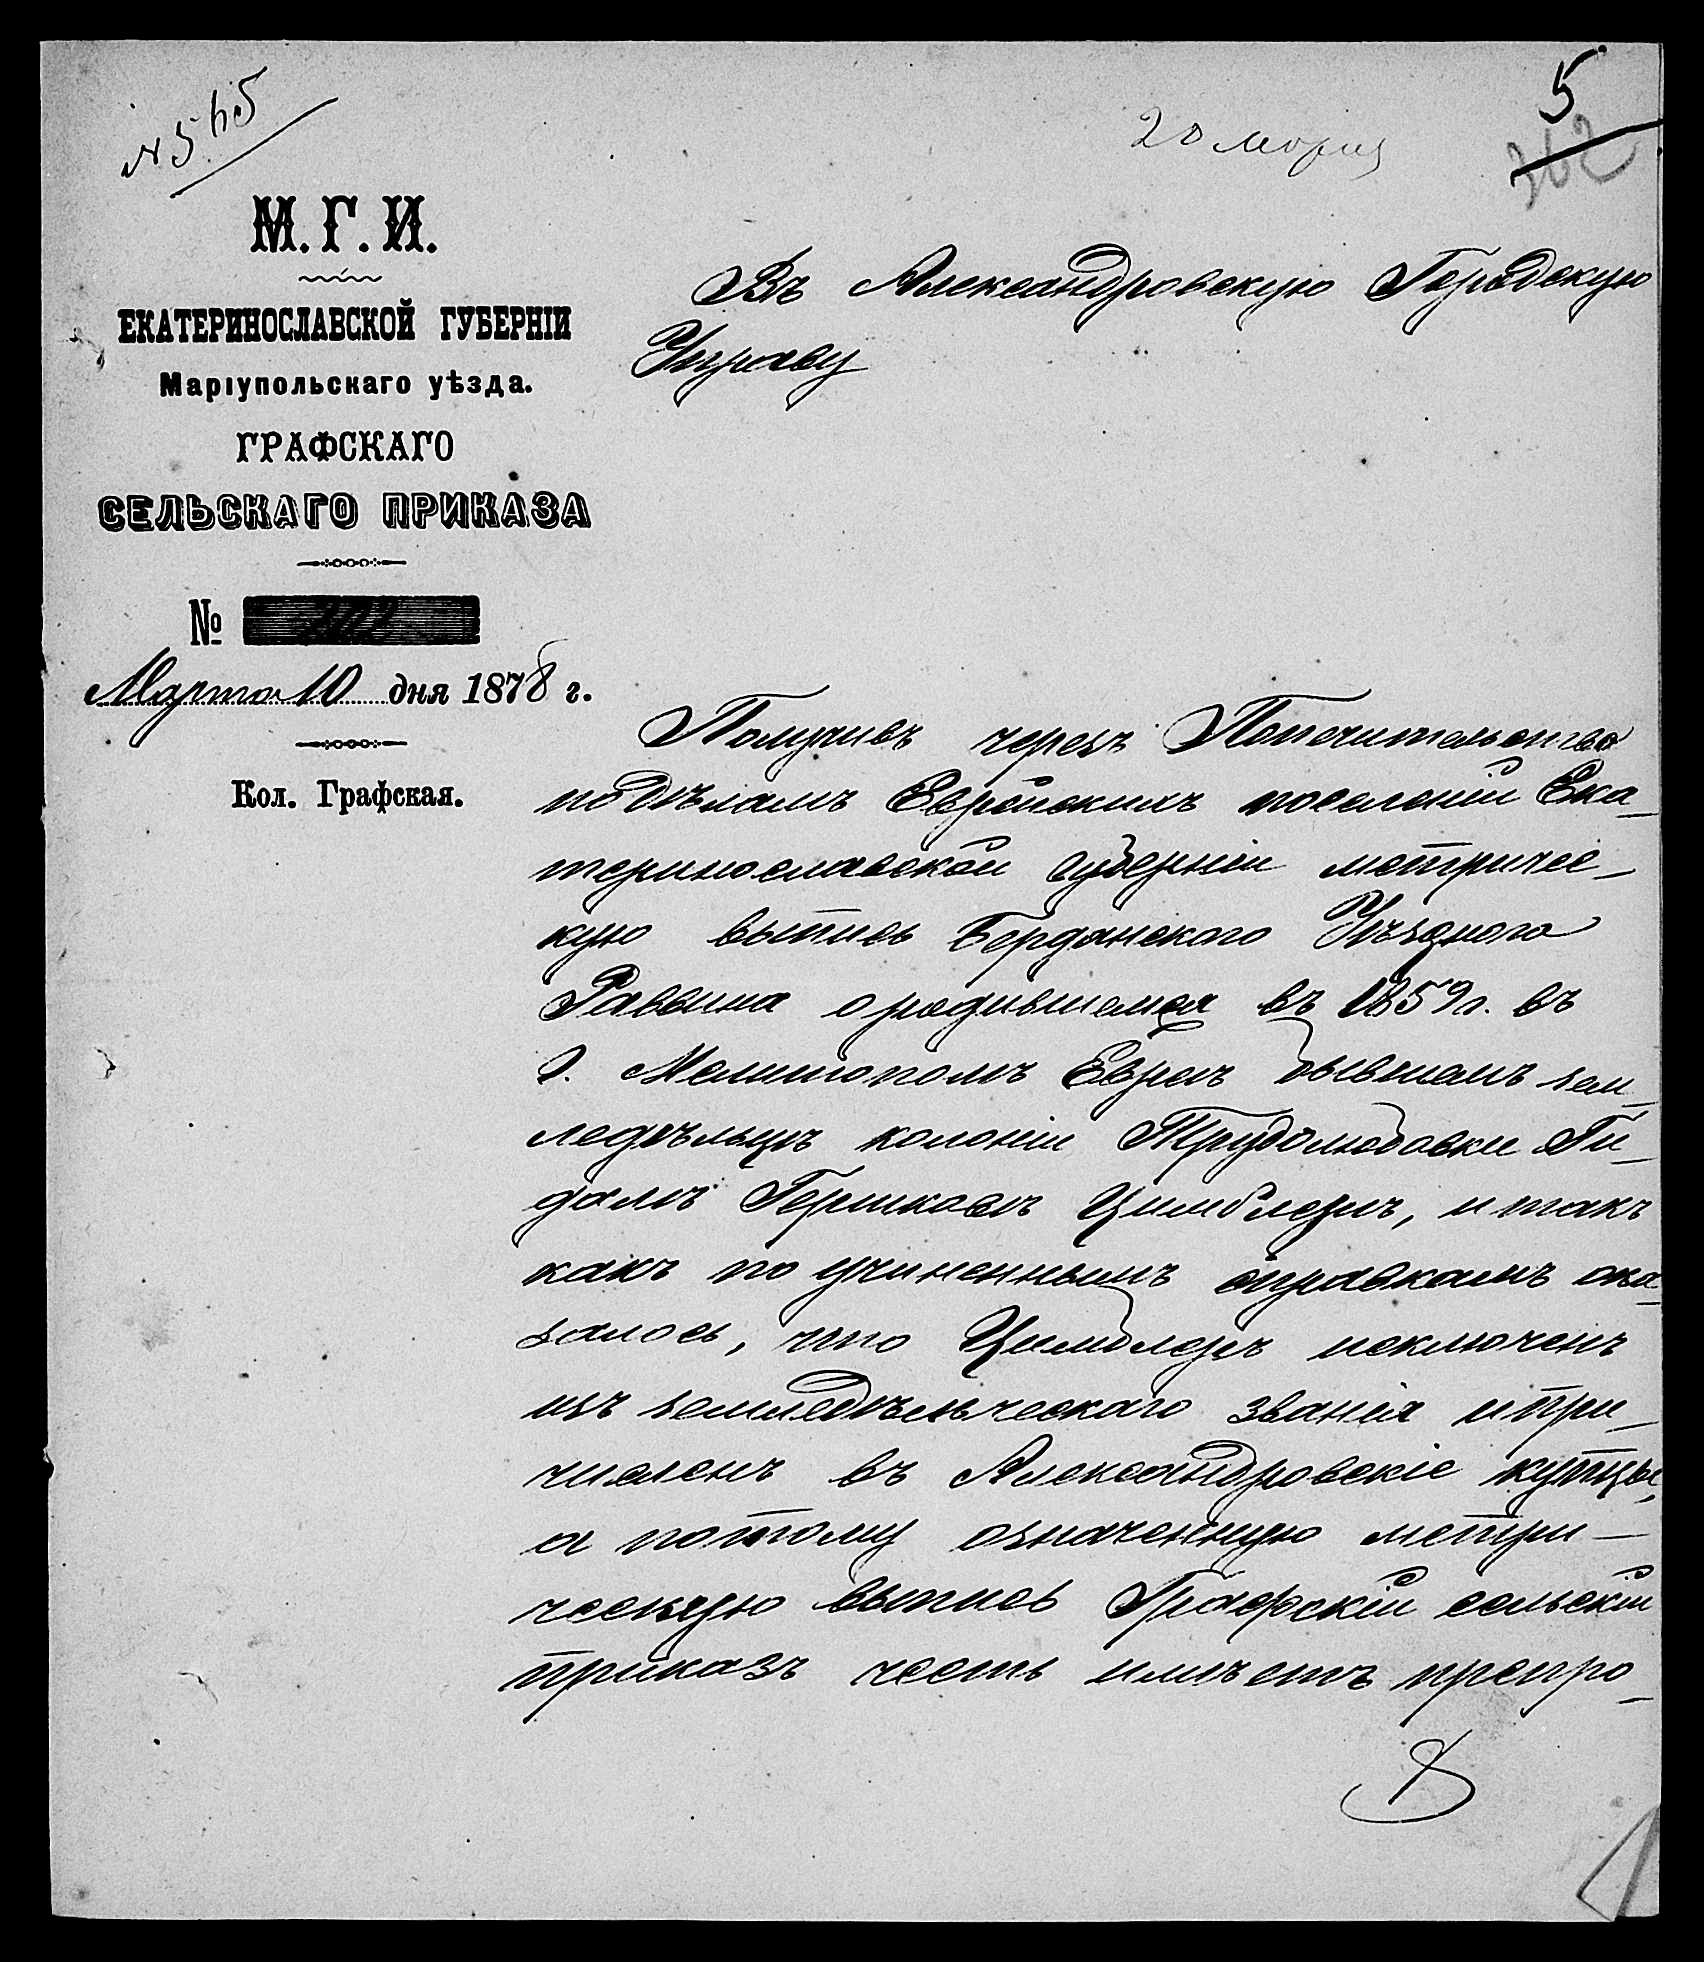 № 565
5
20 марта
362
М. Г. И.
ЕКАТЕРИНОСЛАВСКОЙ ГУБЕРНІИ
Маріупольскаго уѣзда.
ГРАФСКАГО
СЕЛЬСКАГО ПРИКАЗА
№ 202
Марта 10 дня 1878 г.
Кол. Графская.
Въ Александровскую Городскую
Управу
Получивъ черезъ Попечительство
по дѣламъ Еврейскихъ поселеній Ека-
теринославской губерніи метричес-
кую выпись Бердянского Уѣздного
Раввина о родившемся въ 1859 г. въ
г. Мелитополѣ Евреѣ бывшемъ зем-
ледѣльцѣ колоніи Трудолюбовки Ги-
далѣ Гершковѣ Цимблерѣ, и такъ
какъ по учиненнымъ справкамъ ока-
залось, что Цимблеръ исключенъ
изъ земледѣльческаго званія и при-
численъ въ Александровскіе купцы,
а потому означенную метри-
ческую выпись Графскій сельскій
приказъ честь имѣетъ препро-